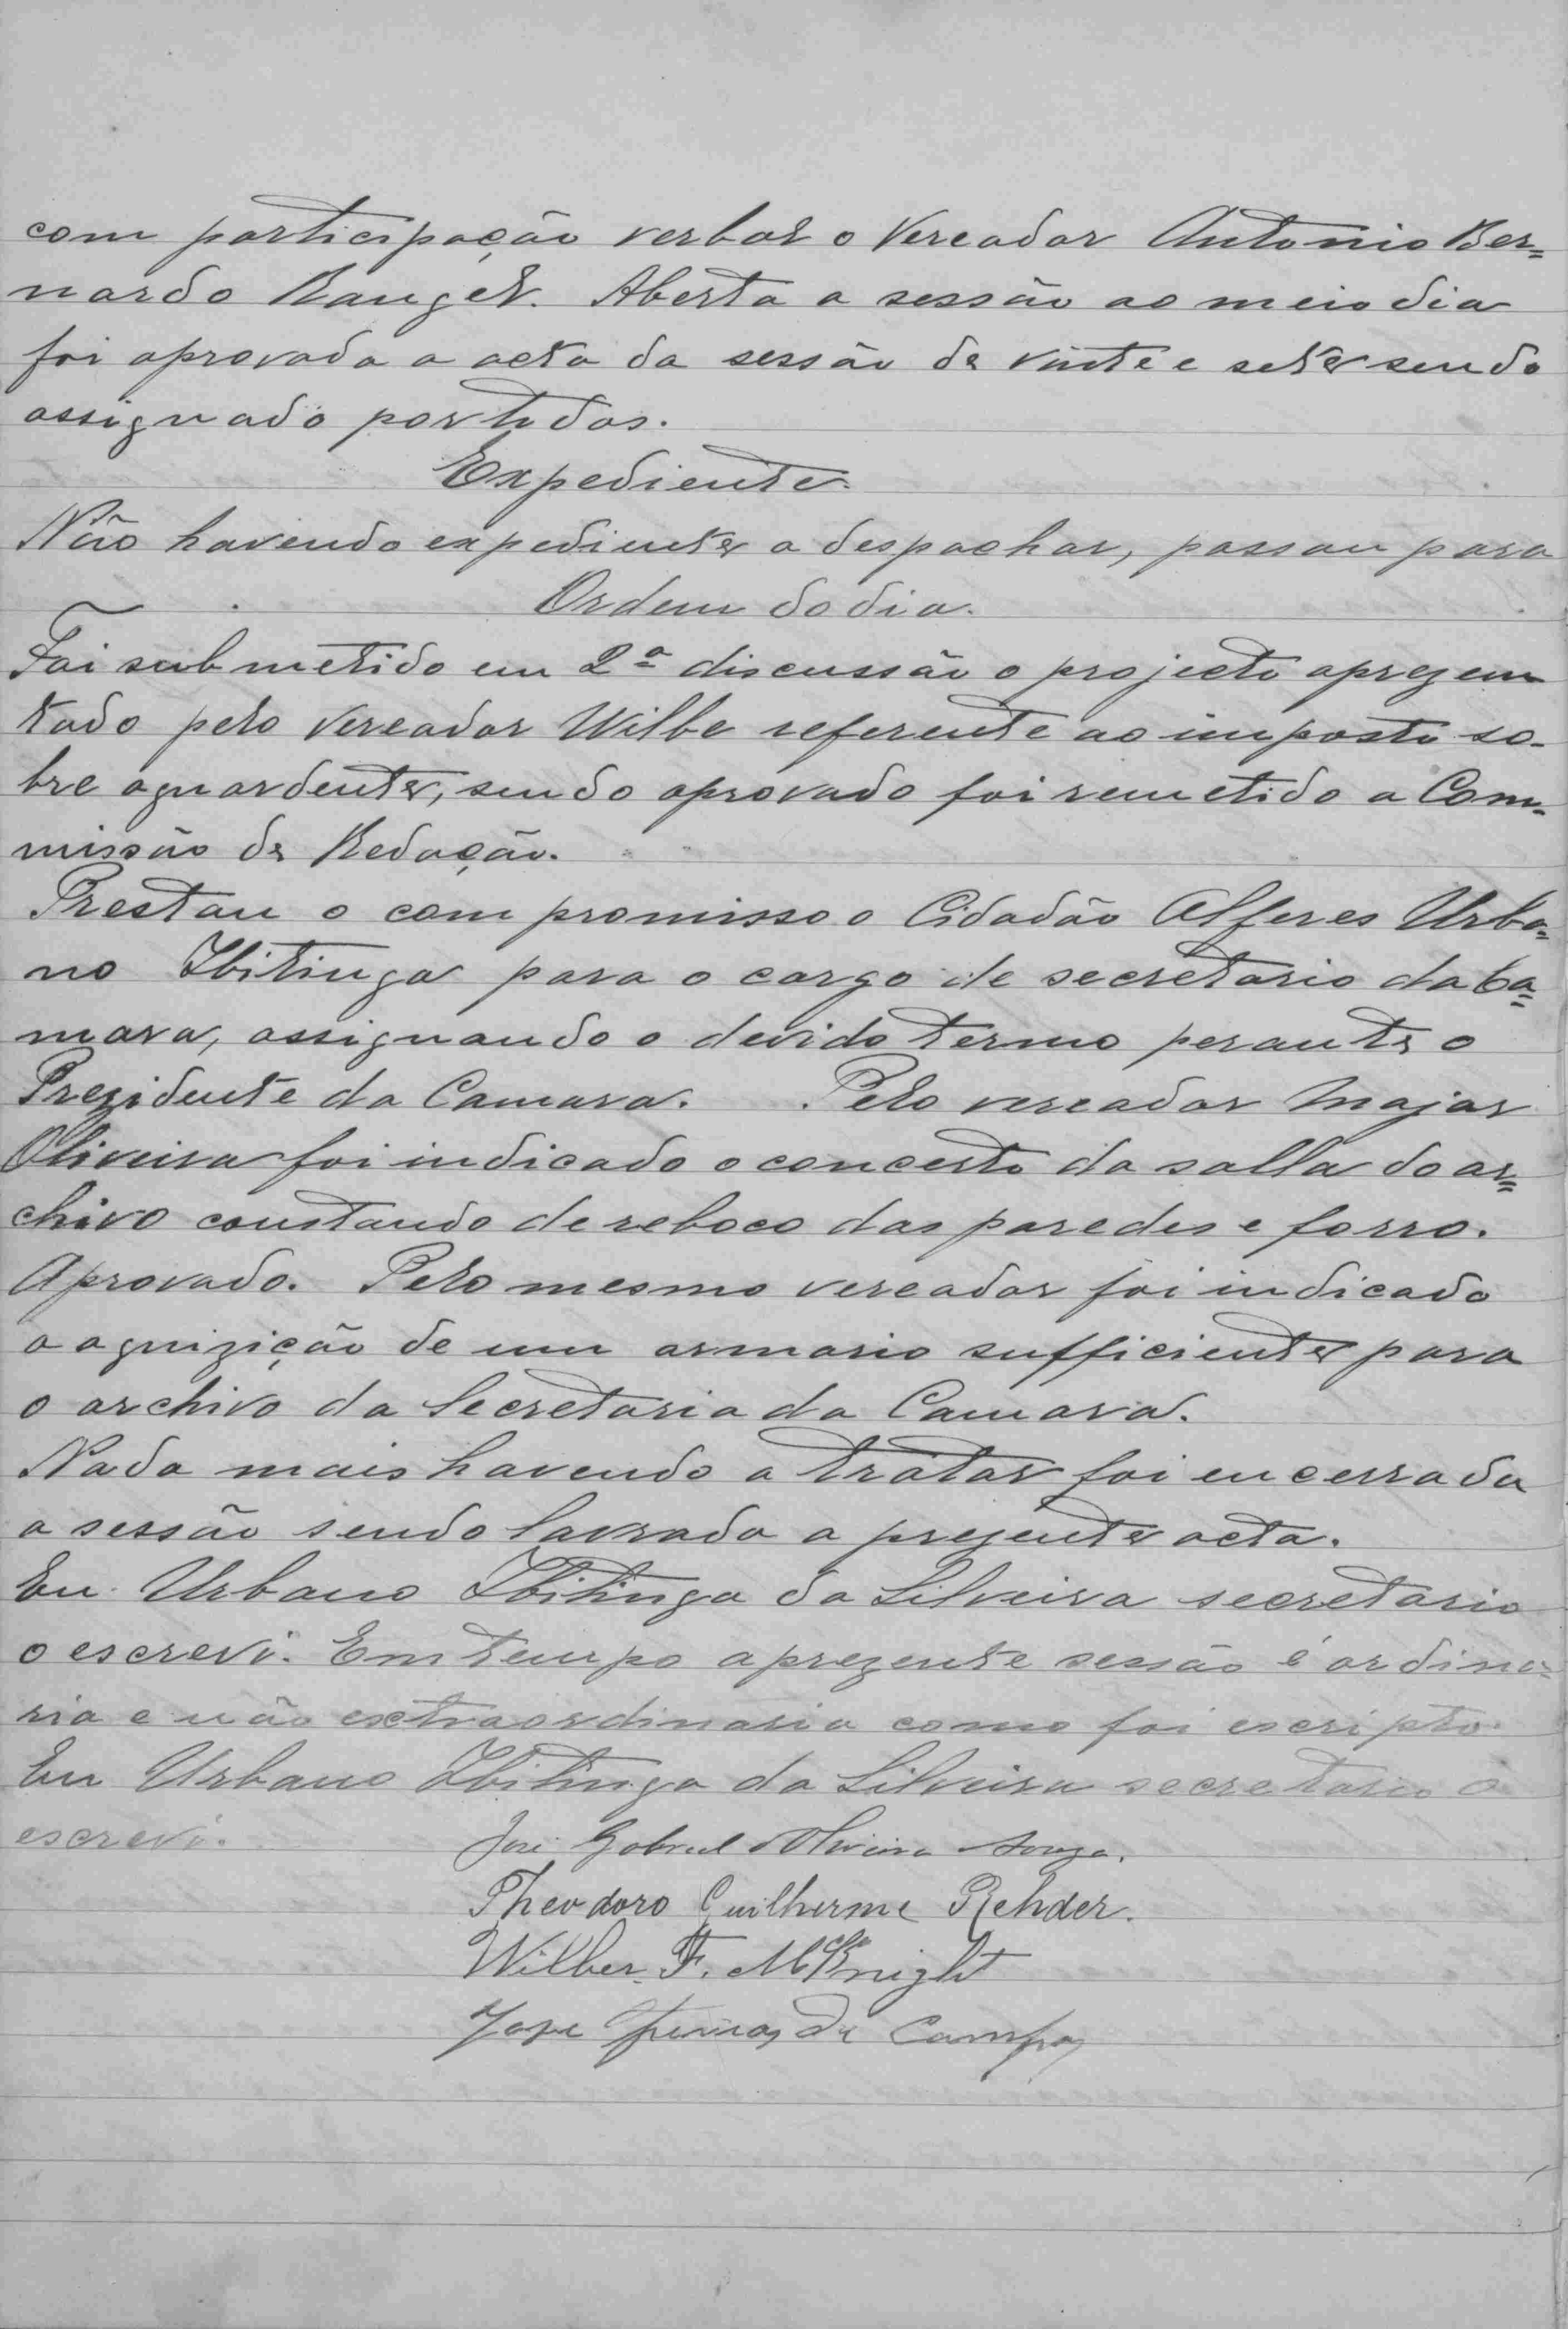 com participação verbal o Vereador Antonio Ber=
nardo Rangel. Aberta a sessão ao meio dia
foi aprovada a acta da sessão de vinte e sete sendo
assignado por todos.
Expediente.
Não havendo expediente a despachar, passou para
Ordem do dia.
Foi submetido em 2ª discussão o projecto aprezen
tado pelo Vereador Wilbe referente ao imposto so-
bre aguardente, sendo aprovado foi remetido a Com-
missão de Redação.
Prestou o compromisso o Cidadão Alferes Urba=
no Ibitinga para o cargo de secretario da Ca=
mara, assignando o devido termo perante o
Prezidente da Camara. Pelo vereador Major
Oliveira foi indicado o concerto da salla do ar=
chivo constando de reboco das paredes e forro.
Aprovado. Pelo mesmo vereador foi indicado
a aquizição de um armario sufficiente para
o archivo da Secretaria da Camara.
Nada mais havendo a tratar foi encerrada
a sessão sendo lavrada a prezente acta.
Eu Urbano Ibitinga da Silveira secretario
o escrevi. Em tempo a prezente sessão é ordina=
ria e não extraordinaria como foi escripto.
Eu Urbano Ibitinga da Silveira secretario o
escrevi.
José Gabriel d'Oliveira Souza.
Theodoro Guilherme Rehder.
Wilber F. McKnight
Jose de Campos